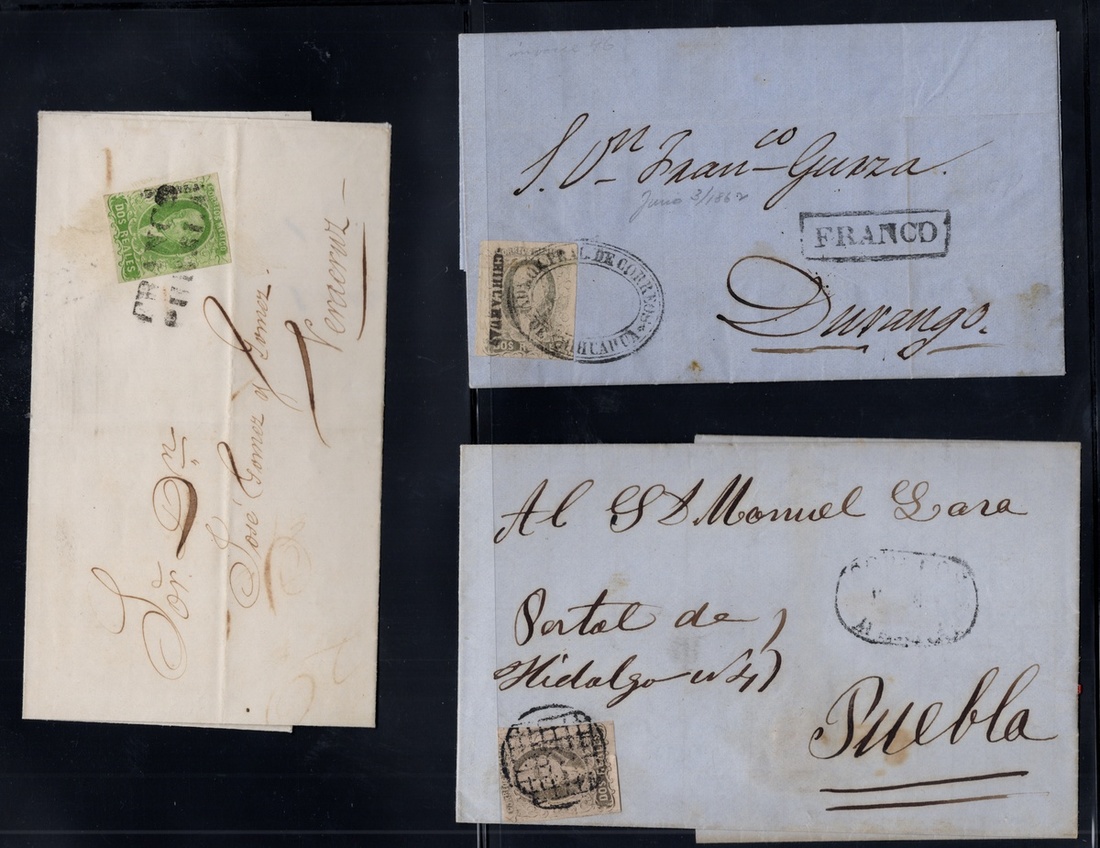 DOS REALES
Sor. Dn
José Gomez y Gomez
Veracruz
S. Dn Franco Gurza.
Junio 3/1862
FRANCO
CHIHUAHUA
GRAL. DE CORREOS
CHIHUAHUA
DOS R
Durango.
Al S D Manuel Lara
Portal de
Hidalgo
Puebla